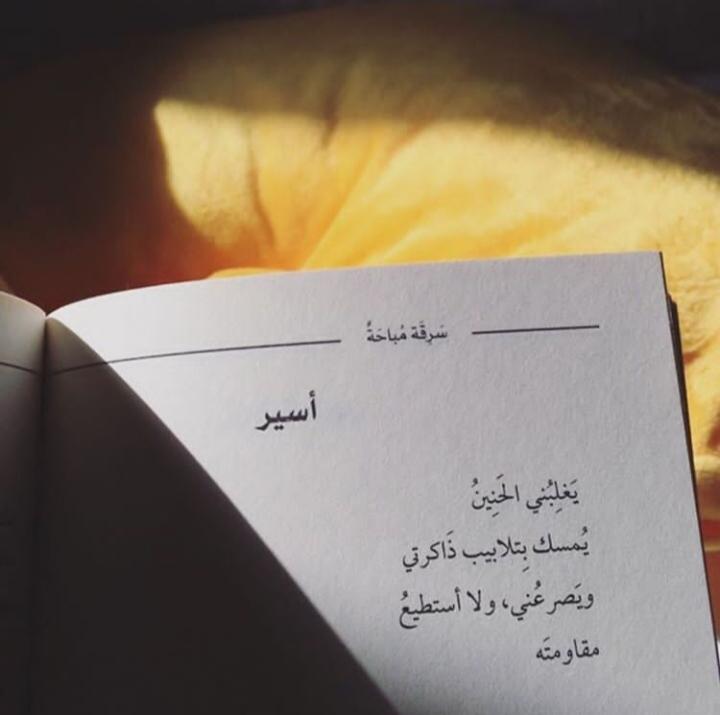 سَرِقَة مُباحَةٌ
أسير
يَغلِبُني الحَنِينُ
يُمسك بِتلابيب ذَاكرتي
ويَصرعُني، ولا أستطيعُ
مقاومتَه